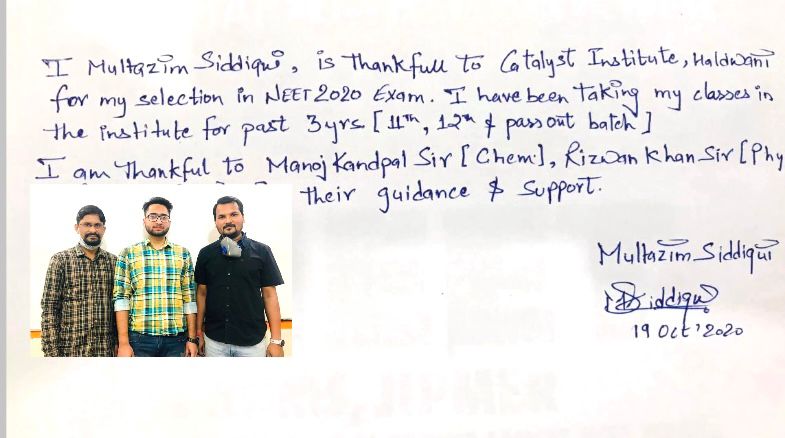 I Multazim Siddiqui, is thankfull to Catalyst Institute, Haldwani
for my selection in NEET 2020 Exam. I have been taking my classes in
the institute for past 3yrs [11th, 12th & pass out batch]
I am thankful to Manoj Kandpal Sir [Chem.], Rizwan Khan Sir [Phy
their guidance & support.
Multazim Siddiqui
Siddiqui
19 Oct'2020